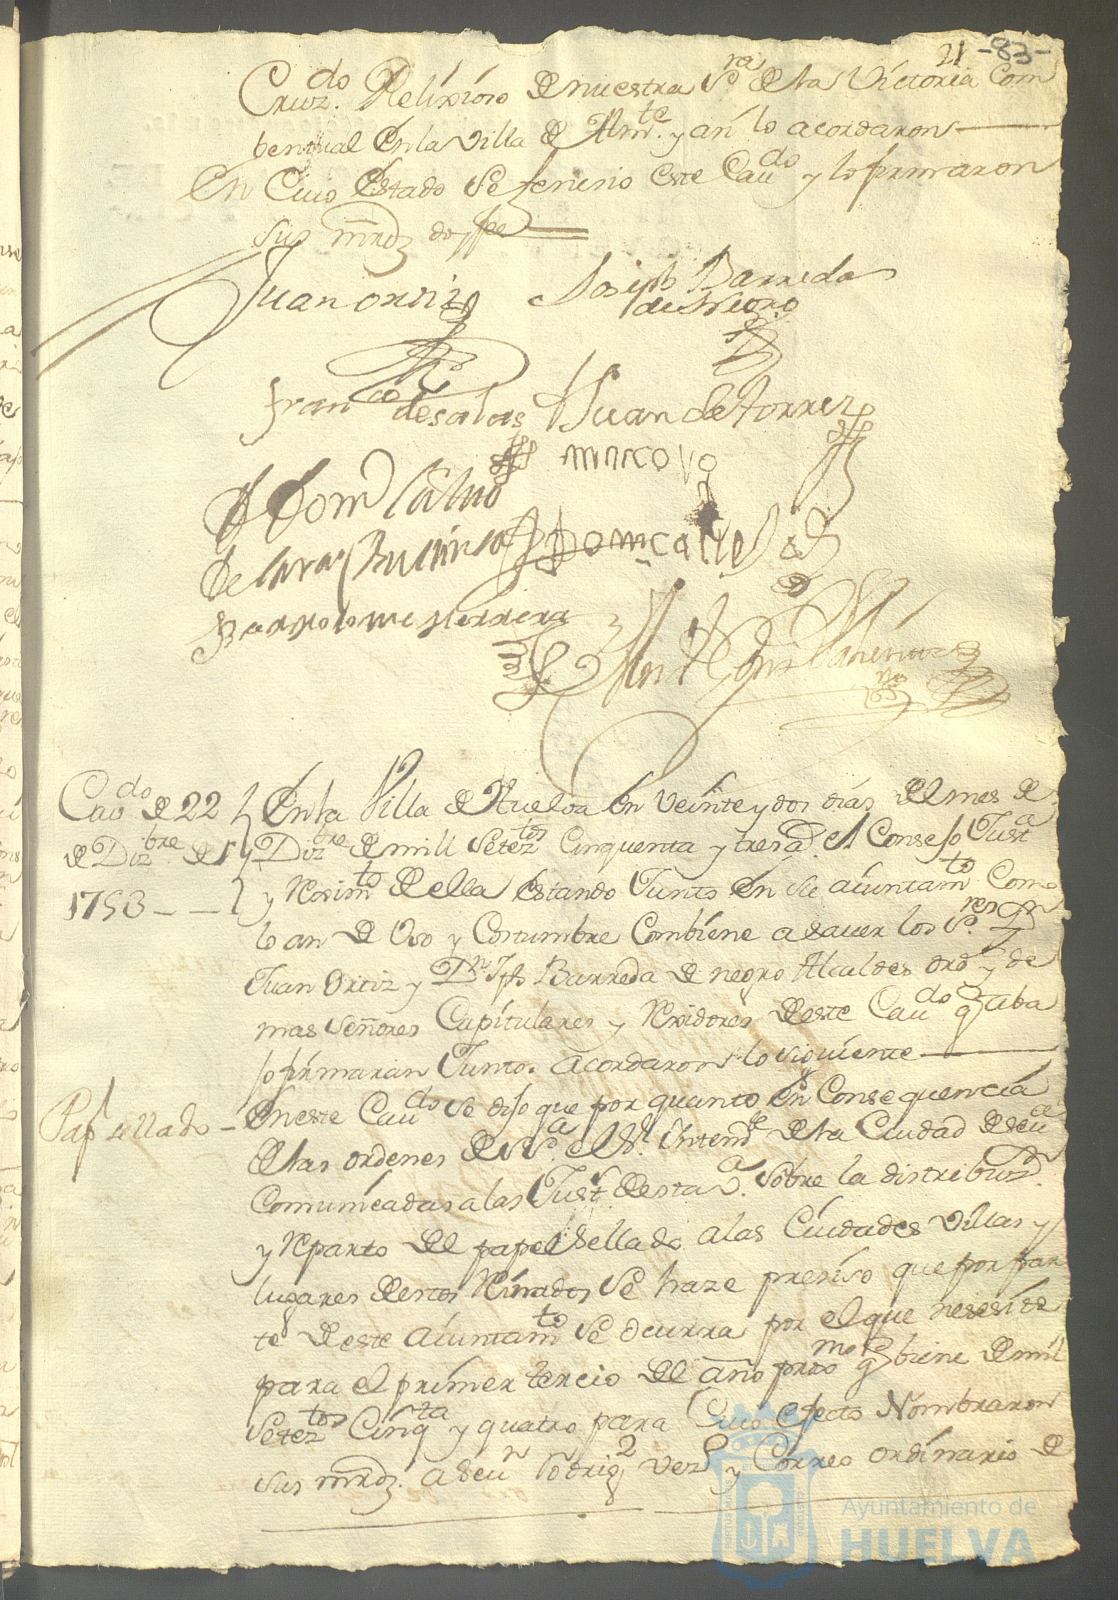 21 -83-
Cruz.do Relixioso de nuestra Sra de la Victoria Com
bentual en la Villa de Almte. y asi lo acordaron
En Cuio Estado se fenesio este Cavdo y lo firmaron
sus mrdz doy fee
Juan ortiz Joseph Barreda
de Negro
Franco de salas Juan de torrez
Domo Calvo
de lara
Bartolome Herrera
Cavdo de 22 En la Villa de Huelva en veinte y dos dias del mes de
de Dizbre de Dizbre de mill seteztos Cinquenta y tres as. el Consejo Justa
1753 y Reximto de ella estando Juntos en su aiuntamto Como
lo an de Uso y Costumbre Combiene a sauer los Sres Dn
Juan Ortiz y Dn Jph Barreda de negro Alcaldes ords y de
mas señores Capitulares y Rexidores de este Cavdo q aba
jo firmaran Juntos acordaron lo siguiente
Papl sellado En este Cavdo se dijo que por quanto en Consequencia
de las ordenes de Sa. el Sr. Intende de la Ciudad de seva
Comunicadas a las Justs de esta Va. sobre la distribuzn.
y Reparto del papel sellado a las Ciudades villas y
lugares de estos Reinados se haze presiso que por par
te de este aiuntamto se ocurra por el que nesesite
para el primer tercio del año proxmo q biene de mil
Seteztos Cinqta y quatro para Cuio efecto Nombraron
sus mrdz. a Rodrigz vezo y Correo ordinario de
Ayuntamiento de
HUELVA